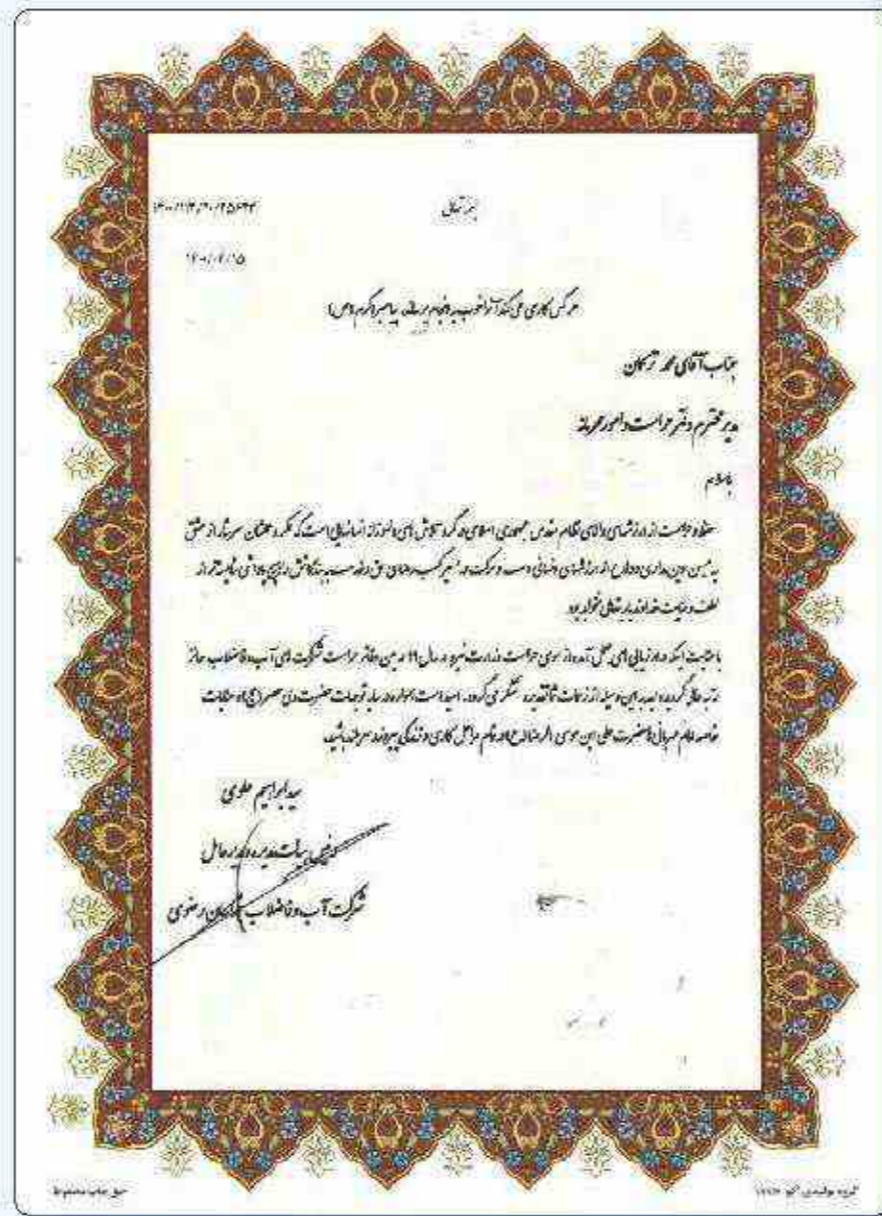 بسمه تعالی
۱۴۰۰/۰۴/۱۵
هر کس کاری می کند آنرا خوب به انجام برساند. پیامبر اکرم (ص)
جناب آقای محمد
مدیر محترم دفتر حراست و امور محرمانه
باسلام
حفظ و حراست از ارزشهای والای نظام مقدس جمهوری اسلامی در گرو تلاش های انسانهایی است که عملکردشان سرشار از عشق
به میهن، دین مداری و دفاع از ارزشهای و حرکت در مسیر کسب رضای حق و خدمت به بندگانش
لطف و عنایت خداوند باریتعالی نخواهد بود
با عنایت اینکه در ارزیابی های بعمل آمده از سوی حراست وزارت نیرو در سال ۹۹ در بین دفاتر حراست شرکت های آب و فاضلاب حائز
رتبه عالی گردیده اید، بدین وسیله از زحمات تشکر می گردد. امید است همواره در سایه توجهات حضرت ولی عصر (عج) و عنایات
خاصه امام مهربانی ها حضرت علی ابن موسی الرضا (ع) در تمام مراحل کاری و زندگی پیروز و سربلند باشید.
سید ابراهیم علوی
رئیس هیات مدیره و مدیرعامل
شرکت آب و فاضلاب خراسان رضوی
حق چاپ محفوظ
گروه تولیدی